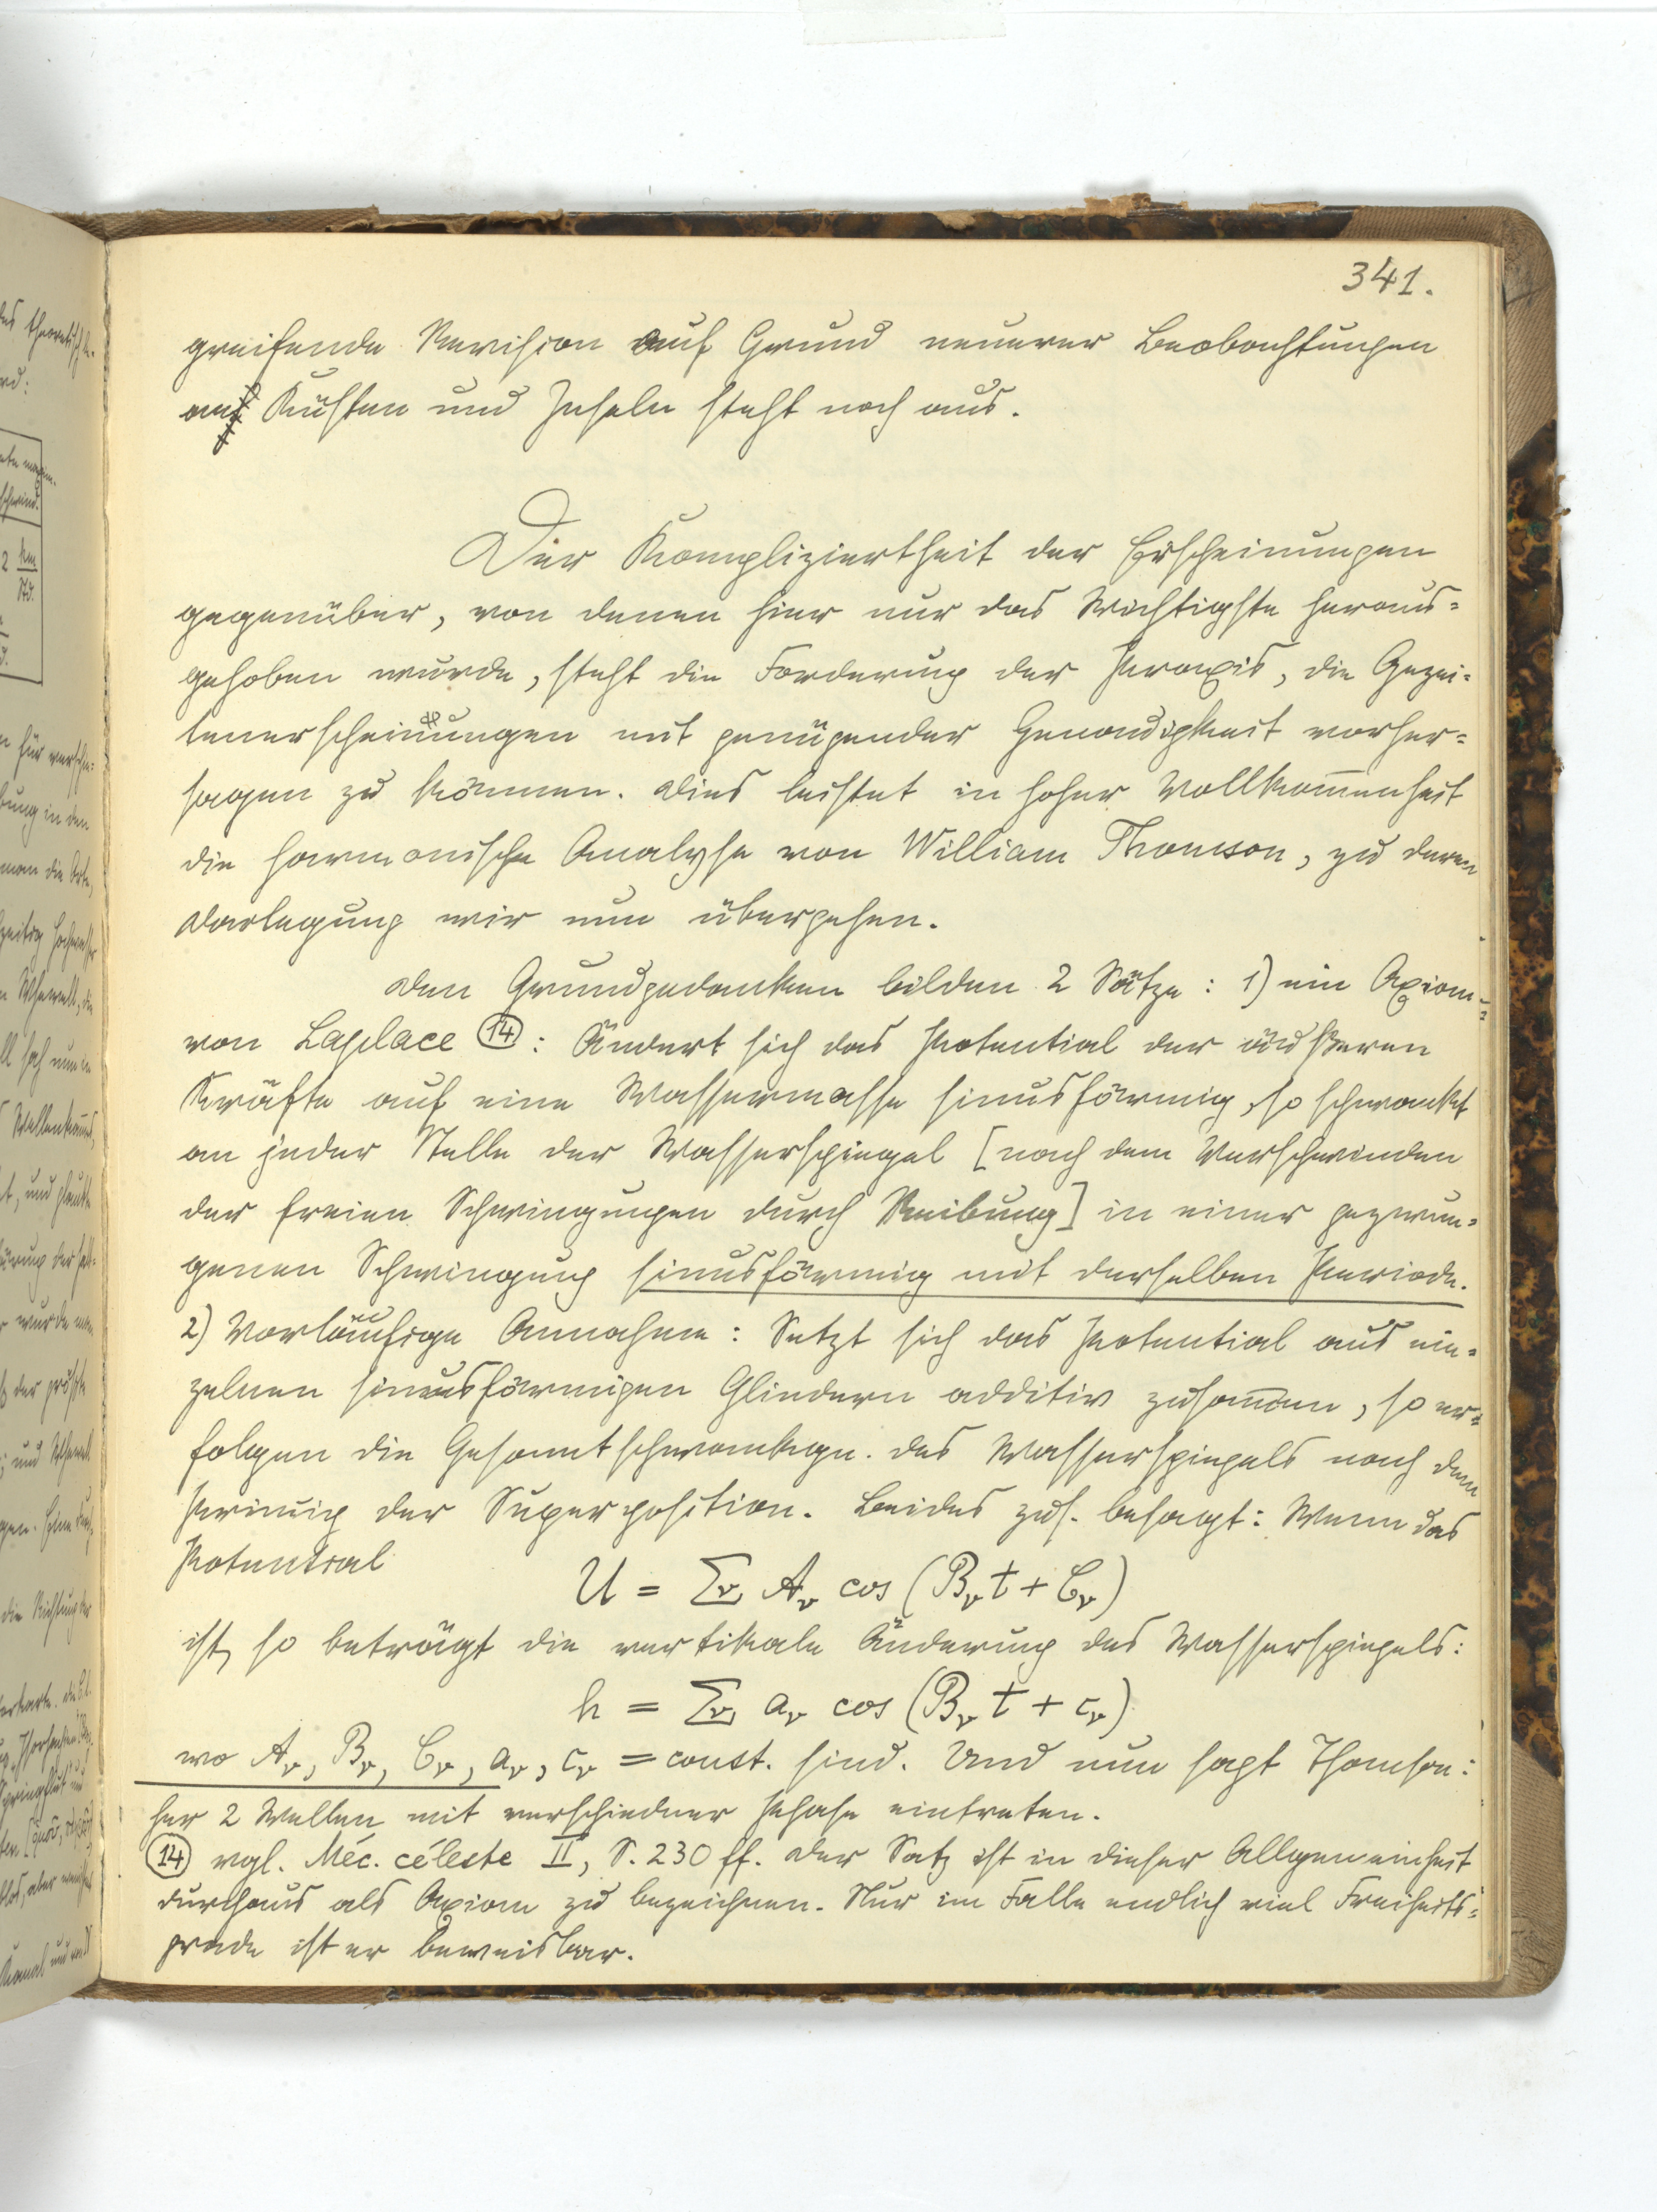 341.
greifende Revision auf Grund neuerer Beobachtungen
an Küsten und Inseln steht noch aus.
Der Kompliziertheit der Erscheinungen
gegenüber, von denen hier nur das Wichtigste heraus=
gehoben wurde, steht die Forderung der Praxis, die Gezei=
tenerscheinungen mit genügender Genauigkeit vorher=
sagen zu können. Dies leistet in hoher Vollkom̅enheit
die harmonische Analyse von William Thomson, zu deren
Darlegung wir nun übergehen.
Den Grundgedanken bilden 2 Sätze: 1) ein Axiom
von Laplace ⑭: Ändert sich das Potential der äußeren
Kräfte auf eine Wassermasse sinusförmig, so schwankt
an jeder Stelle der Wasserspiegel [nach dem Verschwinden
der freien Schwingungen durch Reibung] in einer gezwun=
genen Schwingung sinusförmig mit derselben Periode.
2) Vorläufige Annahme: Setzt sich das Potential aus ein=
zelnen sinusförmigen Gliedern additiv zusam̅en, so er=
folgen die Gesamtschwankgn. des Wasserspiegels nach dem
Prinzip der Superposition. Beides zus. besagt: Wenn das
Potential
U = Σν Aν cos (Bν t + Cν)
ist, so beträgt die vertikale Änderung des Wasserspiegels:
h = Σν aν cos (Bν t + cν)
wo Aν, Bν, Cν, aν, cν = const. sind. Und nun sagt Thomson:
her 2 Wellen mit verschiedner Phase eintreten.
⑭ vgl. Méc. céleste II, S. 230 ff. Der Satz ist in dieser Allgemeinheit
durchaus als Axiom zu bezeichnen. Nur im Falle endlich viel Freiheits=
grade ist er beweisbar.